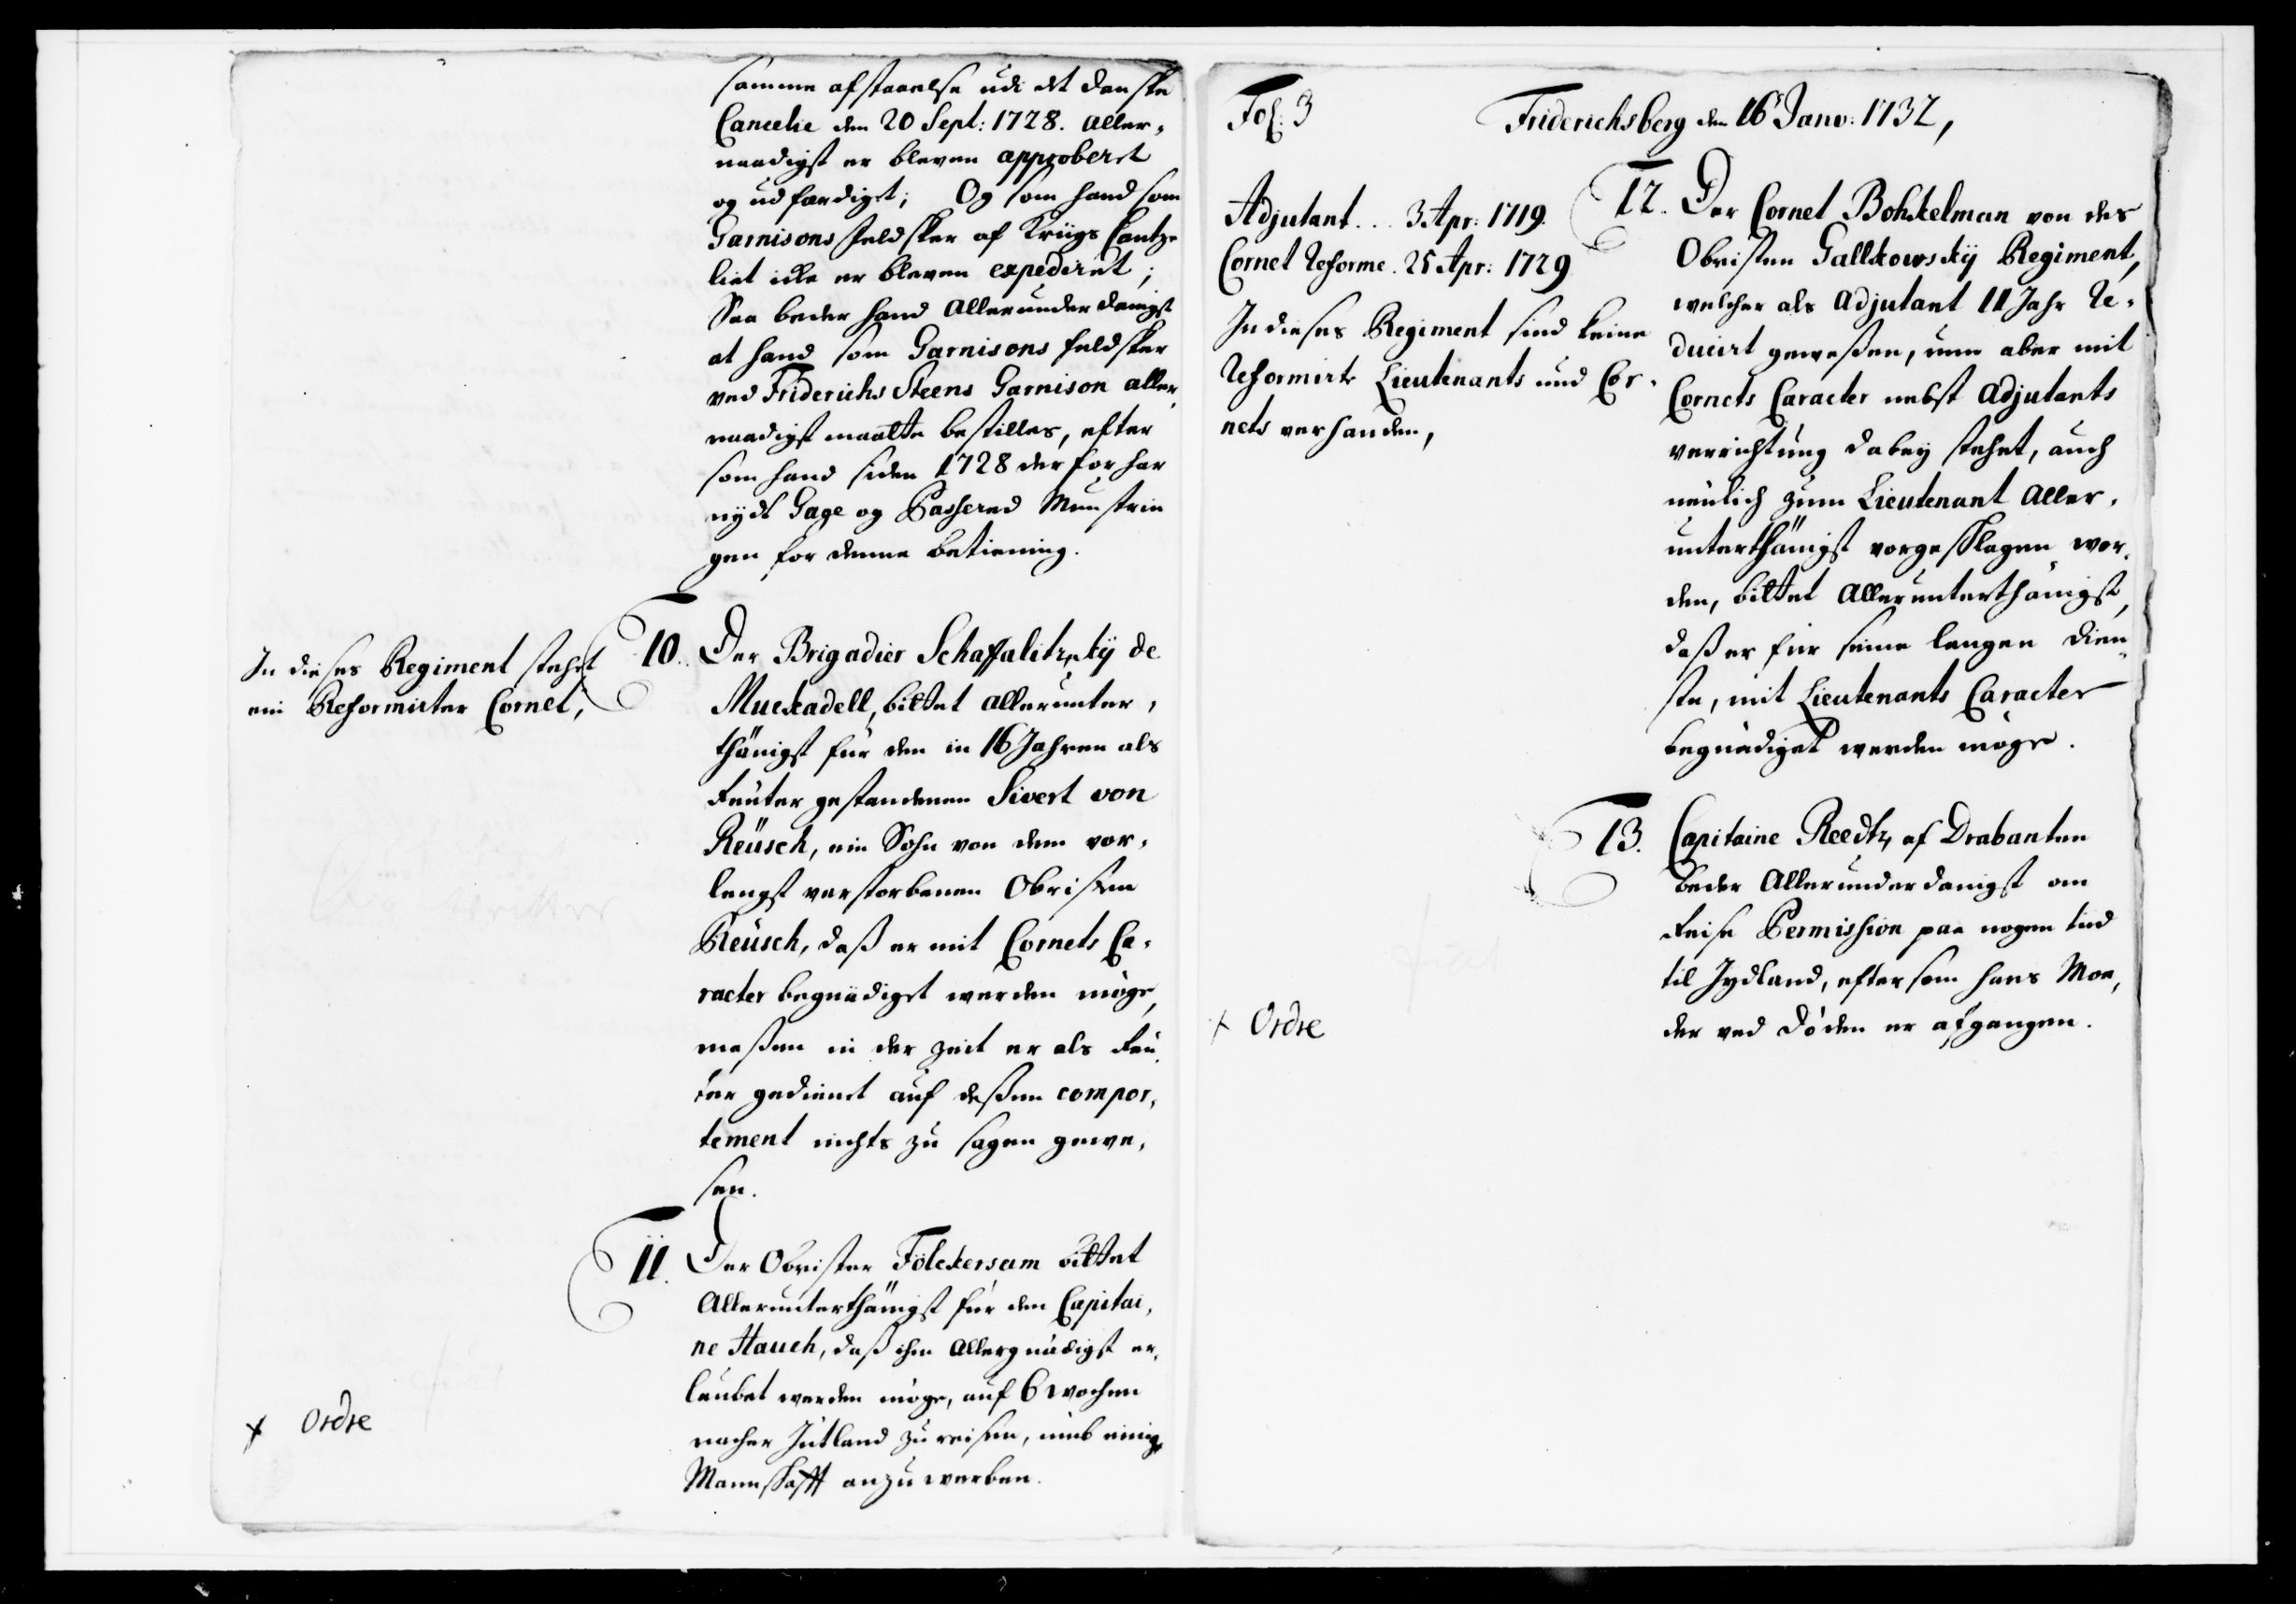 samme afstaaelse udi det danske
Cancelie den 20 Sept: 1728. aller,
naadigst er bleven approberet
og udfærdiget; Og som hand som
Garnisons feldsker af Kriigs Cantze
liet icke er bleven expediret;
Saa beder hand Allerunderdanigst
at hand som Garnisons feldsker
ved Friderichs Steens Garnison aller,
naadigst maatte bestilles, efter
som hand siden 1728 derfor har
nÿdt Gage og Passered Mŭnstrin
gen for denne betiening.
In dieses Regiment stehet
ein Reformirter Cornet,
10. Der Brigadier Schaffalitzkÿ de
Muckadell, bittet allerunter,
thänigst für den in 16 Jahren als
Reuter gestandenen Sivert von
Reüsch, ein Sohn von dem vor,
lengst verstorbenen Obristen
Reüsch, daß er mit Cornets Ca,
racter begnädiget werden möge,
maßen in der zeit er als Reu,
ter gedienet auf deßen compor,
tement nichts zu sagen gewe,
sen.
11. Der Obrister Fölckersam bittet
Allerunterthänigst für den Capitai,
ne Hauch, daß ihm Allergnädigst er,
laubet werden möge, auf 6 wochen
nacher Jütland zu reisen, umb einige
Mannschafft anzuwerben.
+ Ordre
Fol: 3
Friderichsberg den 16 Janv: 1732,
Adjutant... 3 Apr: 1719.
Cornet Reforme. 25 Apr: 1729
In dieses Regiment sind keine
Reformirte Lieutenants und Cor,
nets verhanden,
12. Der Cornet Bohkelman von des
Obristen Gallkowskÿ Regiment,
welcher als Adjutant 11 Jahr Re,
ducirt geweßen, nun aber mit
Cornets Caracter nebst Adjutants
verrichtung dabey stehet, auch
neulich zum Lieutenant Aller,
unterthänigst vorgeschlagen wor,
den, bittet Allerunterthänigst,
daß er für seine langen dien,
ste, mit Lieutenants Caracter
begnädiget werden möge.
13. Capitaine Reedtz af Drabanten
beder Allerunderdanigst om
Reise Permission paa nogen tid
til Jydland, eftersom hans Moe,
der ved døden er afgangen.
+ Ordre